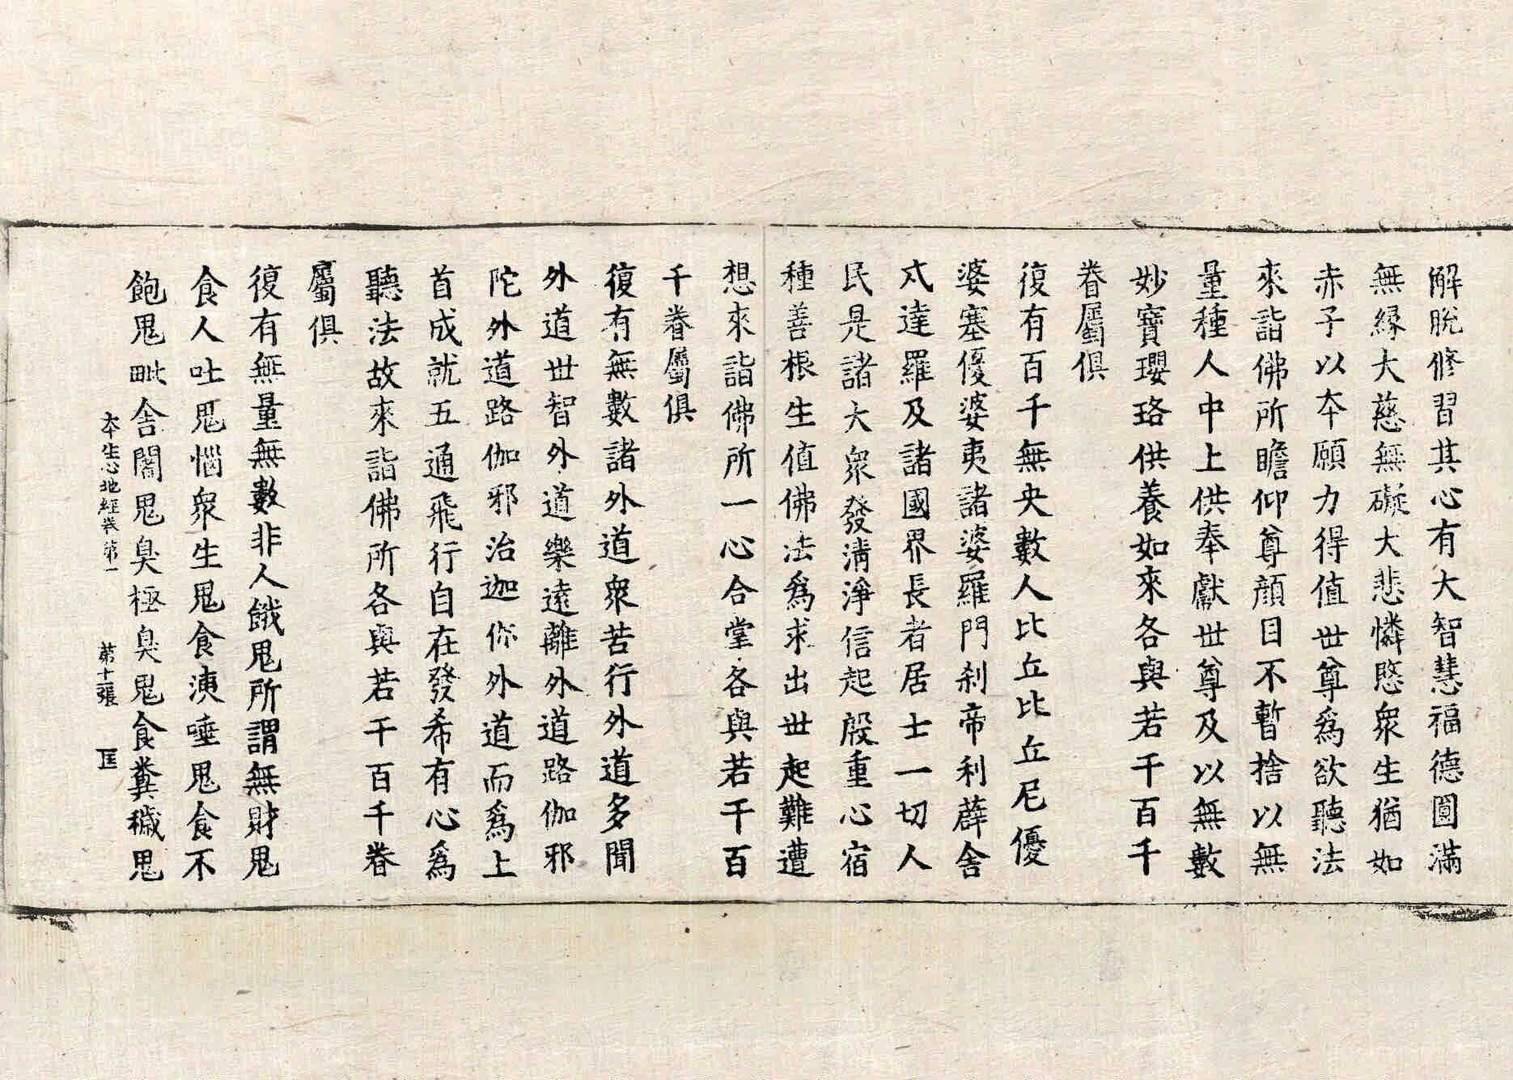 解脫修習其心有大智慧福德圓滿
無緣大慈無礙大悲憐愍衆生猶如
赤子以夲願力得值世尊爲欲聽法
來詣佛所瞻仰尊顔目不暫捨以無
量種人中上供奉獻世尊及以無數
妙寶瓔珞供養如來各與若干百千
眷屬俱
復有百千無央數人比丘比丘尼優
婆塞優婆夷諸婆羅門剎帝利薜舍
戍達羅及諸國界長者居士一切人
民是諸大衆發淸淨信起殷重心宿
種善根生值佛法爲求出世起難遭
想來詣佛所一心合掌各與若干百
千眷屬俱
復有無數諸外道衆苦行外道多聞
外道世智外道樂遠離外道路伽邪
陀外道路伽邪治迦你外道而爲上
首成就五通飛行自在發希有心爲
聽法故來詣佛所各與若干百千眷
屬俱
復有無量無數非人餓鬼所謂無財鬼
食人吐鬼惱衆生鬼食洟唾鬼食不
飽鬼毗舍闍鬼臭極臭鬼食糞穢鬼
夲生心地經卷第一 第十張 匡